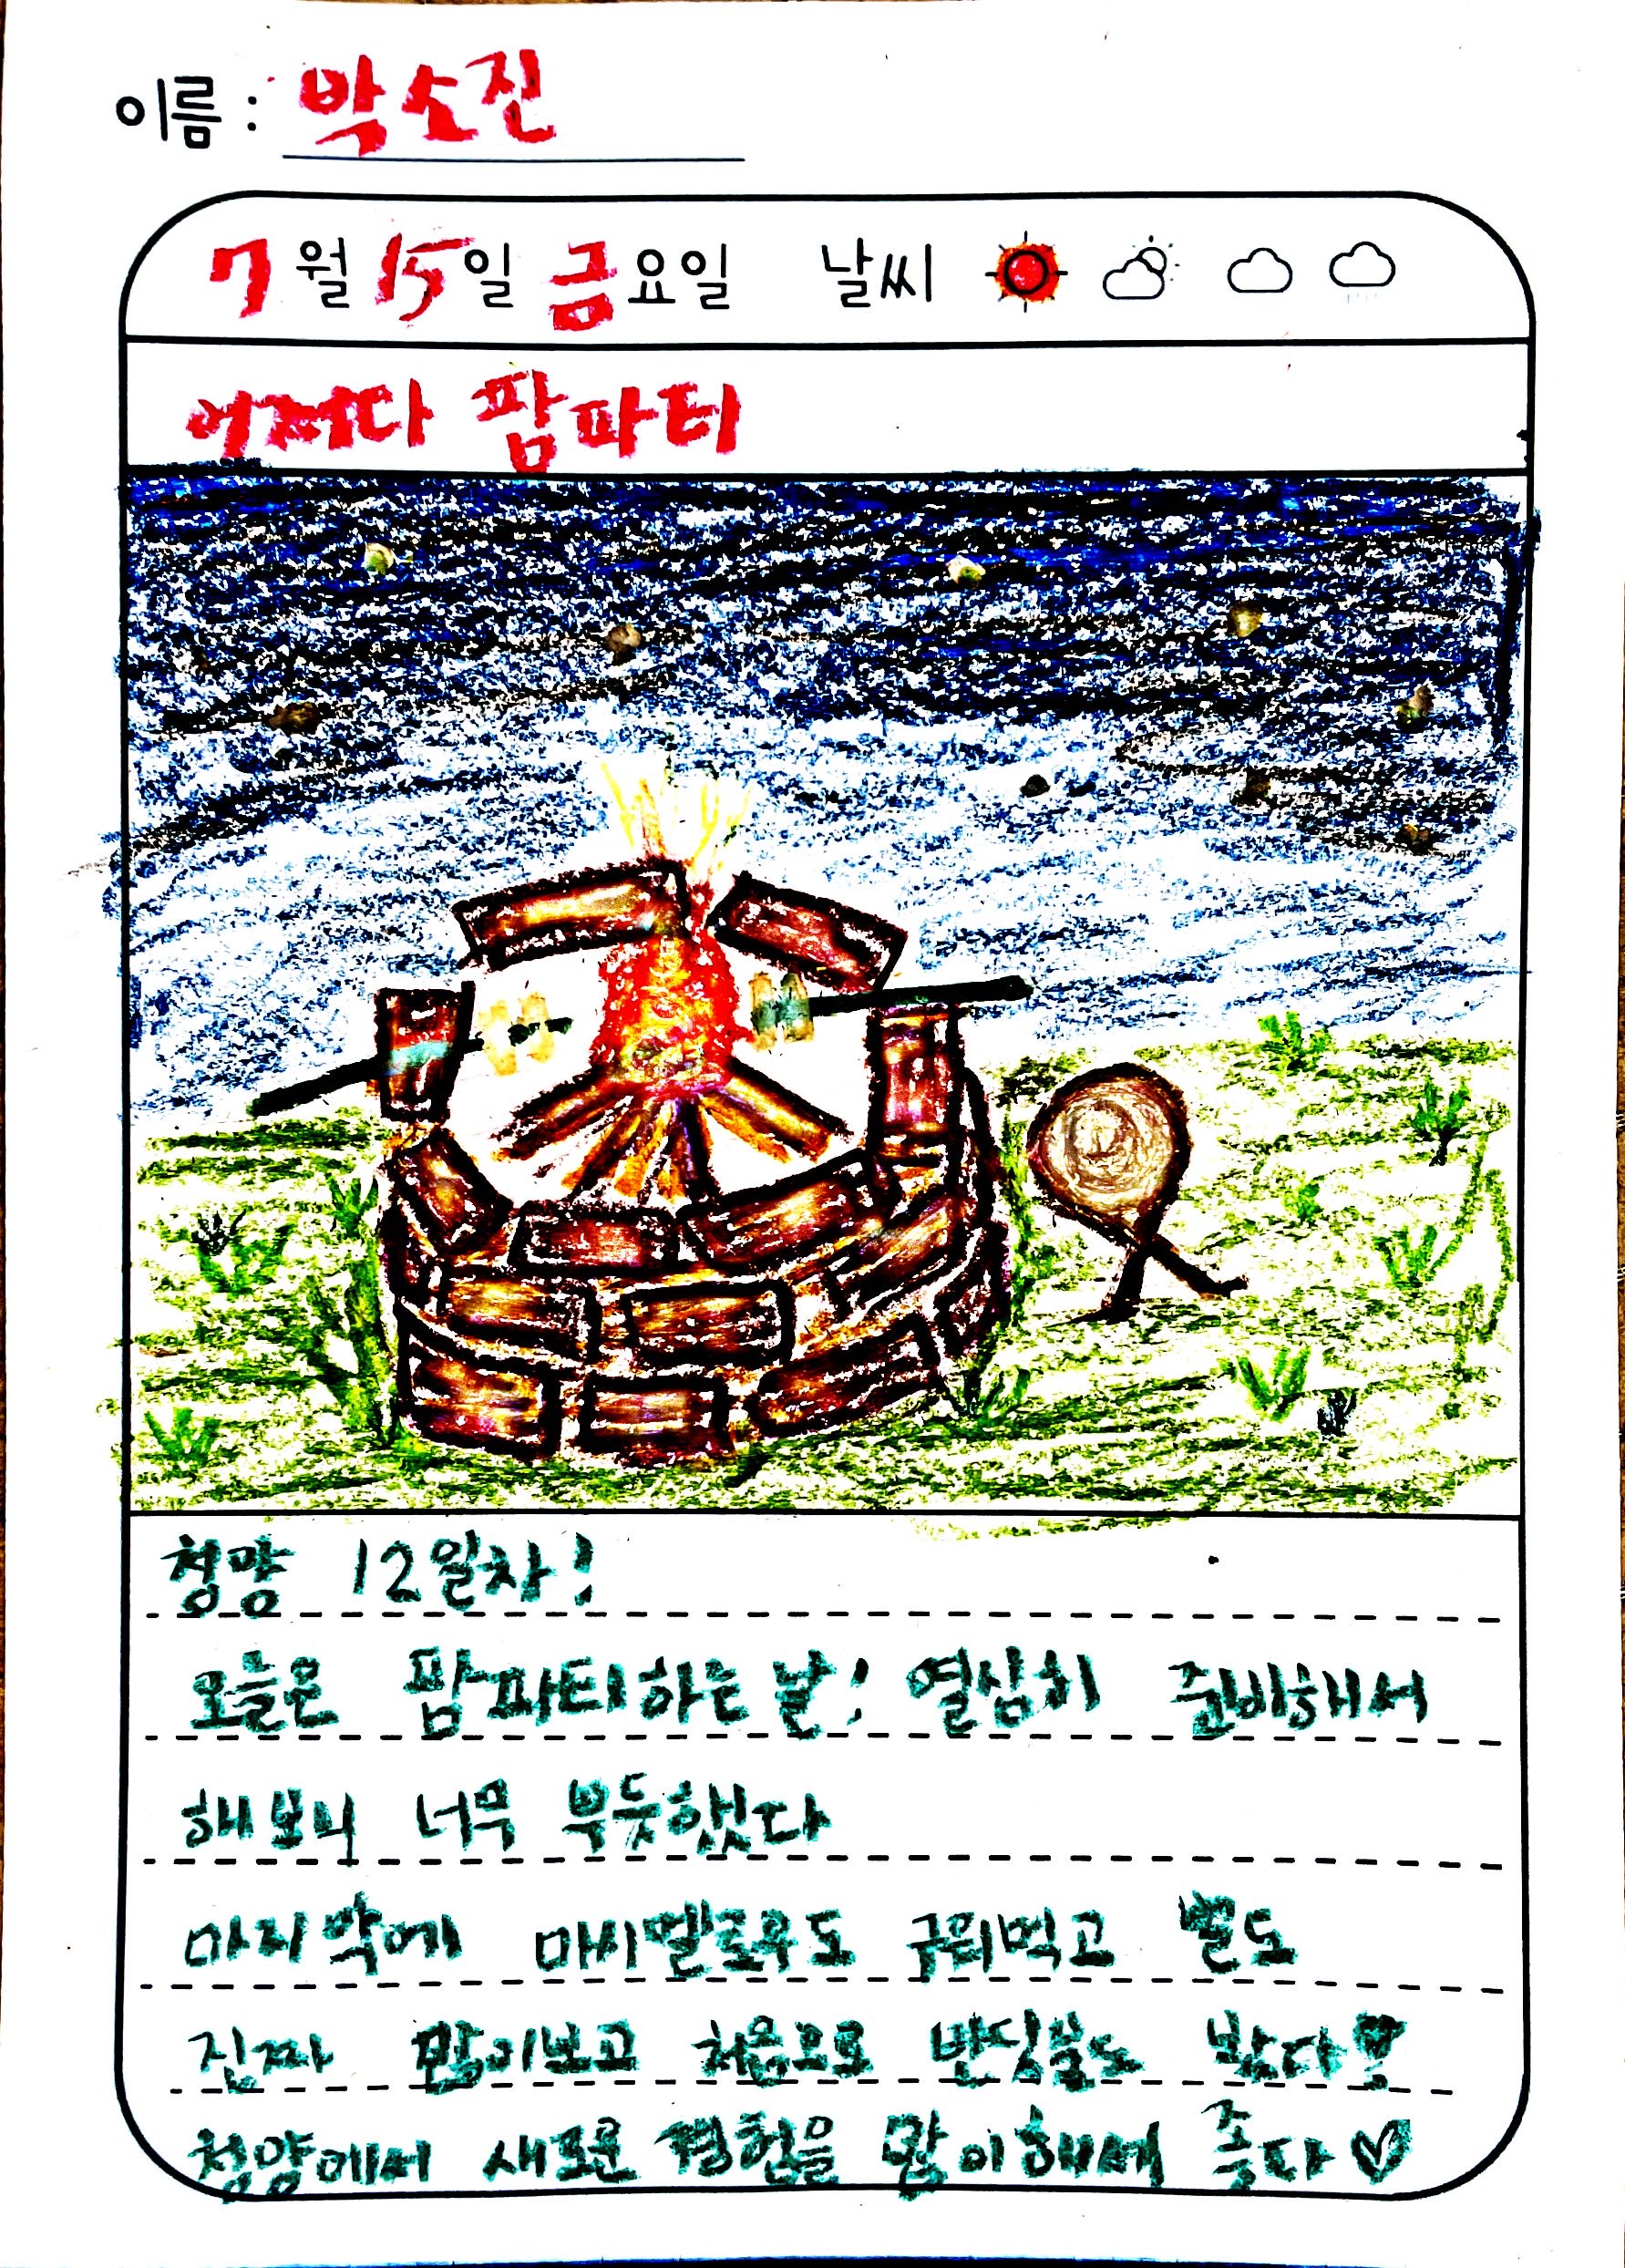 이름 : 박소진
7월 15일 금요일 날씨
어쩌다 팜파티
청양 12일차!
오늘은 팜파티하는날! 열심히 준비해서
해보니 너무 부듯했다
마지막에 마시멜로우도 구워먹고 별도
진짜 많이보고 처음으로 반딧불도 봤다♥
청양에서 새로운 경험을 많이해서 좋다♡